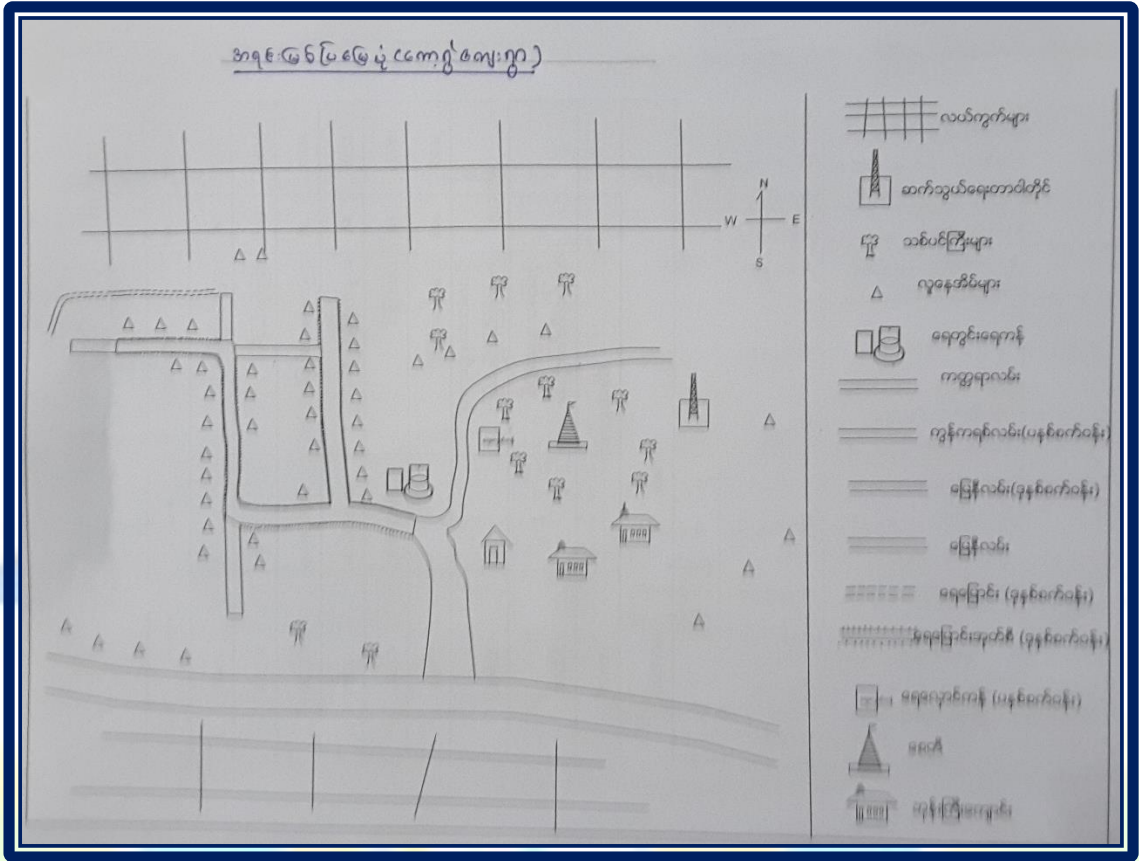 အရင်းမြစ်ပြမြေပုံ (ကော့ဂွဲကျေးရွာ)
N
W E
S
လယ်ကွက်များ
ဆက်သွယ်ရေးတာဝါတိုင်
သစ်ပင်ကြီးများ
လူနေအိမ်များ
ရေတွင်းရေကန်
ကတ္တရာလမ်း
ကွန်ကရစ်လမ်း(ပနှစ်စက်ဝန်း)
မြေနီလမ်း(ဒုနှစ်စက်ဝန်း)
မြေနီလမ်း
ရေမြောင်း (ဒုနှစ်စက်ဝန်း)
ရေမြောင်းအုတ်စီ (ဒုနှစ်စက်ဝန်း)
ရေလှောင်ကန် (ပနှစ်စက်ဝန်း)
စေတီ
ဘုန်းကြီးကျောင်း